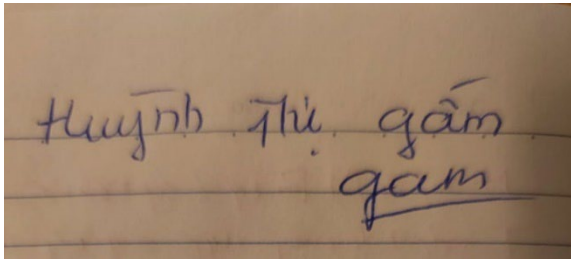 Huỳnh Thị gấm
gam